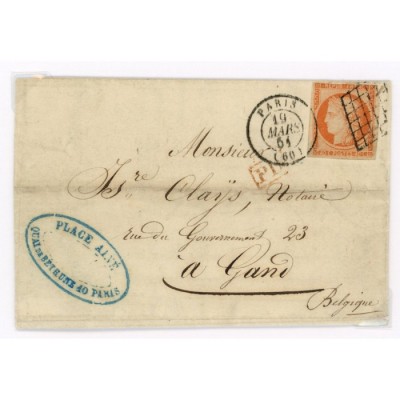 PARIS
19
MARS
51
(60)
Monsieur
Isre Claÿs, Notaire
rue du Gouvernement 23
à Gand
Belgique
PLACE AINÉ
QUAI DE BÉTHUNE 10 PARIS